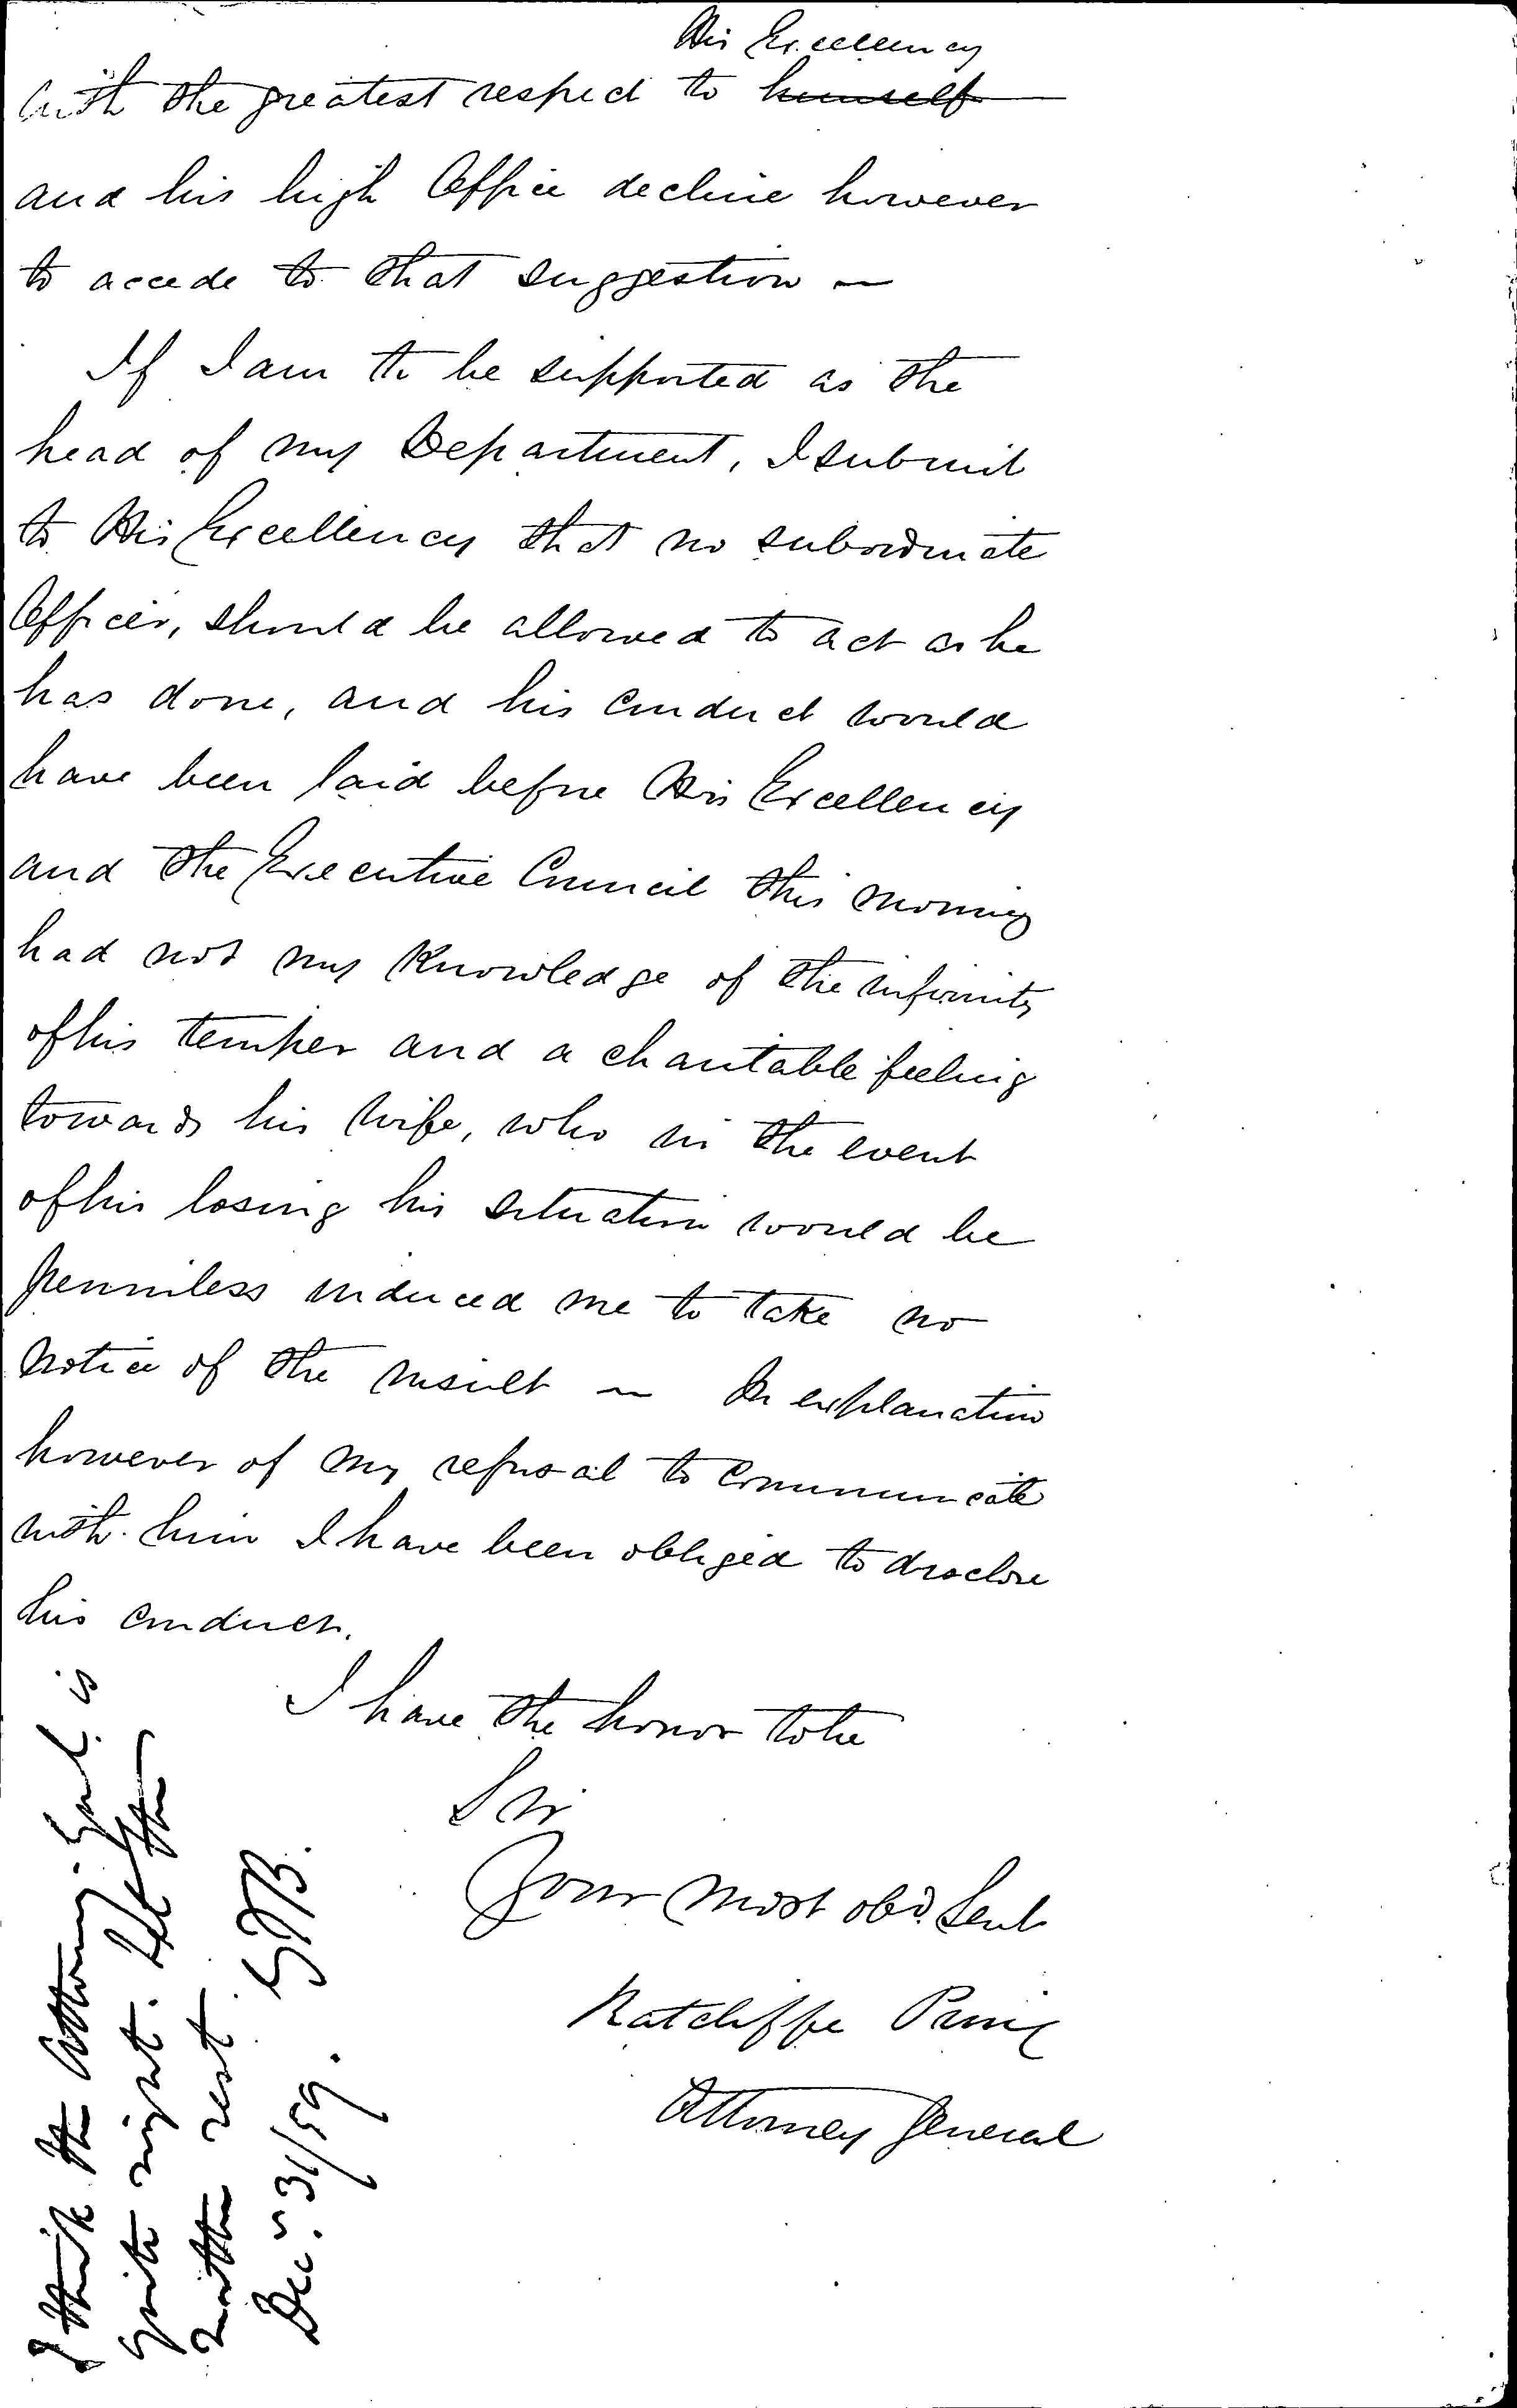 His Excellency
with the greatest respect to himself
and his high Office decline however
to accede to that suggestion –
If I am to be supported as the
head of my Department, I submit
to His Excellency that no subordinate
Officer, should be allowed to act as he
has done, and his conduct would
have been laid before His Excellency
and the Executive Council this morning
had not my Knowledge of the infirmity
of his temper and a charitable feeling
towards his wife, who in the event
of his losing his situation would be
penniless induced me to take no
notice of the insult – In explanation
however of my refusal to communicate
with him I have been obliged to disclose
his conduct.
I have the honor to be
Sir
Your most obd. Servt
Ratcliffe Pring
Attorney General
I think the Attorney Genl. is
quite right. Let the
matter rest
Decr. 31/59.